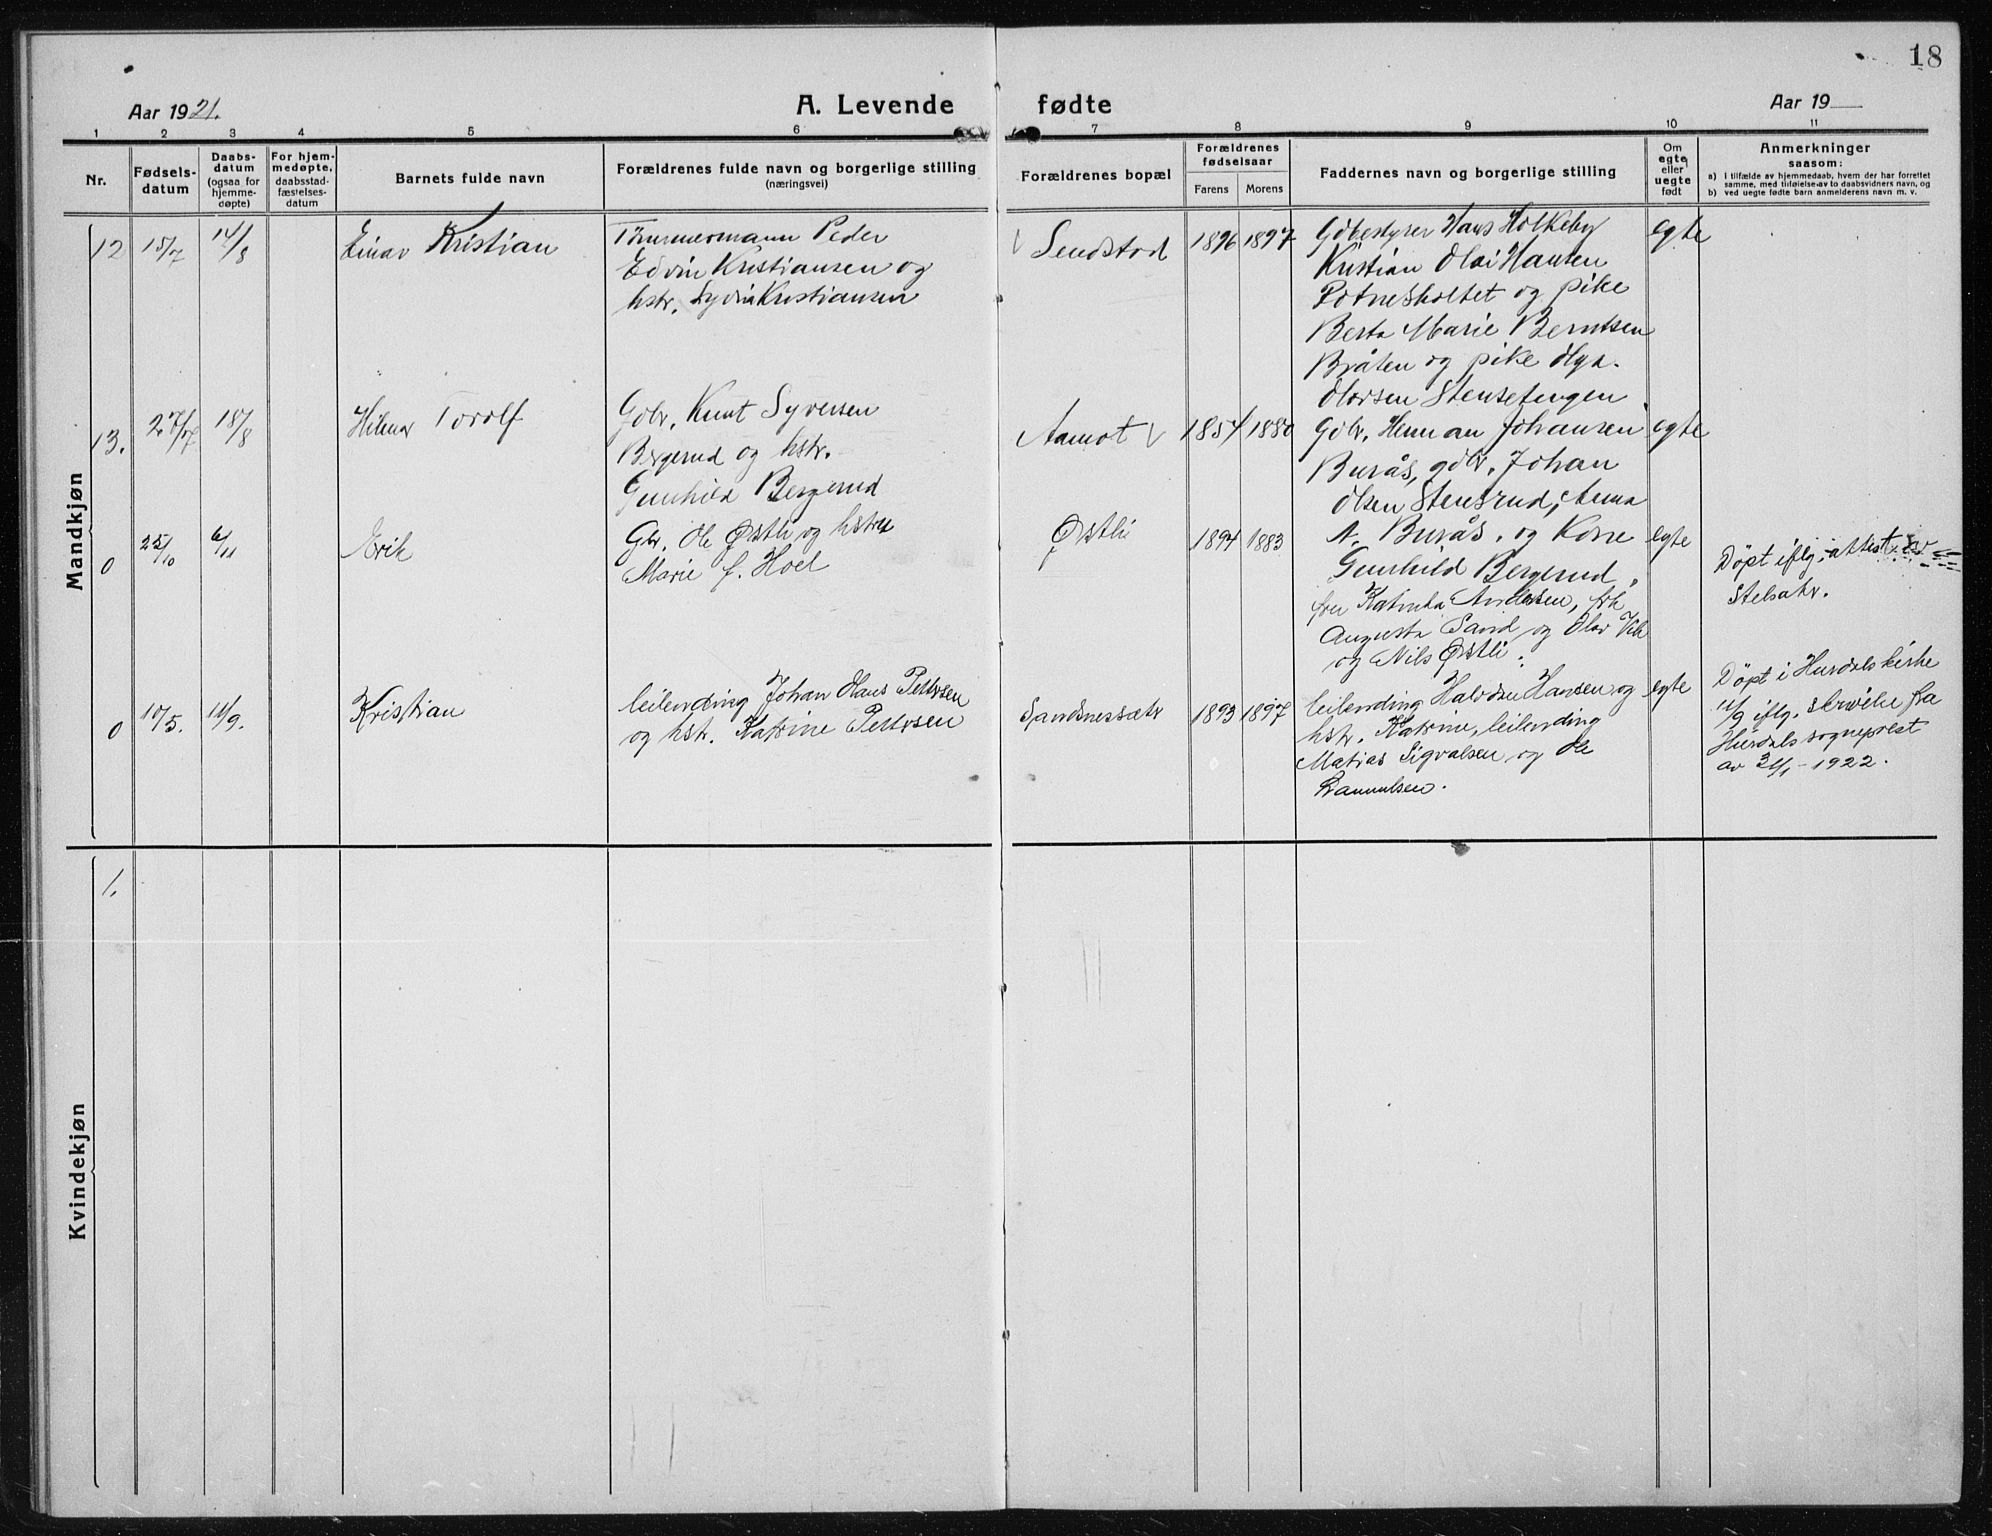 18
Aar 1921.
A. Levende fødte
Aar 19
1 2 3 4 5 6 7 8 9 10 11
Nr.
Fødsels-
datum
Daabs-
datum
(ogsaa for
hjemme-
døpte)
For hjem-
medøpte,
daabsstad-
fæstelses-
datum
Barnets fulde navn
Forældrenes fulde navn og borgerlige stilling
(næringsvei)
Forældrenes bopæl
Forældrenes
fødselsaar
Farens Morens
Faddernes navn og borgerlige stilling
Om
egte
eller
uegte
født
Anmerkninger
saasom:
a) i tilfælde av hjemmedaab, hvem der har forrettet
samme, med tilføielse av to daabsvidners navn, og
b) ved uegte fødte barn anmelderens navn m. v.
Mandkjøn
12 15/7 14/8
Einar Kristian
Tømmermann Peder
Edvin Kristiansen og
hstr. Sydia Kristiansen
Sendstad
1896 1897
Gdbestyrer Hans Holkeby
Kristian Olai Hansen
og pike
Berta Marie Berntsen
Bråten og pike Olga
Olavsen Stensetengen
egte
13. 27/7 18/8
Hilmar Torolf
Gdbr. Knut Syversen
Bergerud og hstr.
Gunhild Bergerud
Aamot
1854 1880
Gdbr. Herman Johansen
Burås, gdbr. Johan
Olsen Stensrud, Anna
A. Burås, og Kone
Gunhild Bergerud.
egte
0 25/10 6/11
Erik
Gbr. Ole Østli og hstru
Marie f. Hoel
Østli
1894 1883
fru Katinka Andersen, frk
Augusta Sand og Olav Vik
og Nils Østli.
egte
Døpt iflg. attest
0 10/5. 11/9.
Kristian
leilending Johan Hans Pettersen
og hstr. Katrine Pettersen
Sandnessætr
1893 1897
leilending Halvdan Hansen og
hstr. Katrine, leilending
Matias Sigvalsen og Ole
Samuelsen.
egte
Døpt i Hurdals kirke
11/9 iflg. skrivelse fra
Hurdals sogneprest
av 31/1-1922.
Kvindekjøn
1.